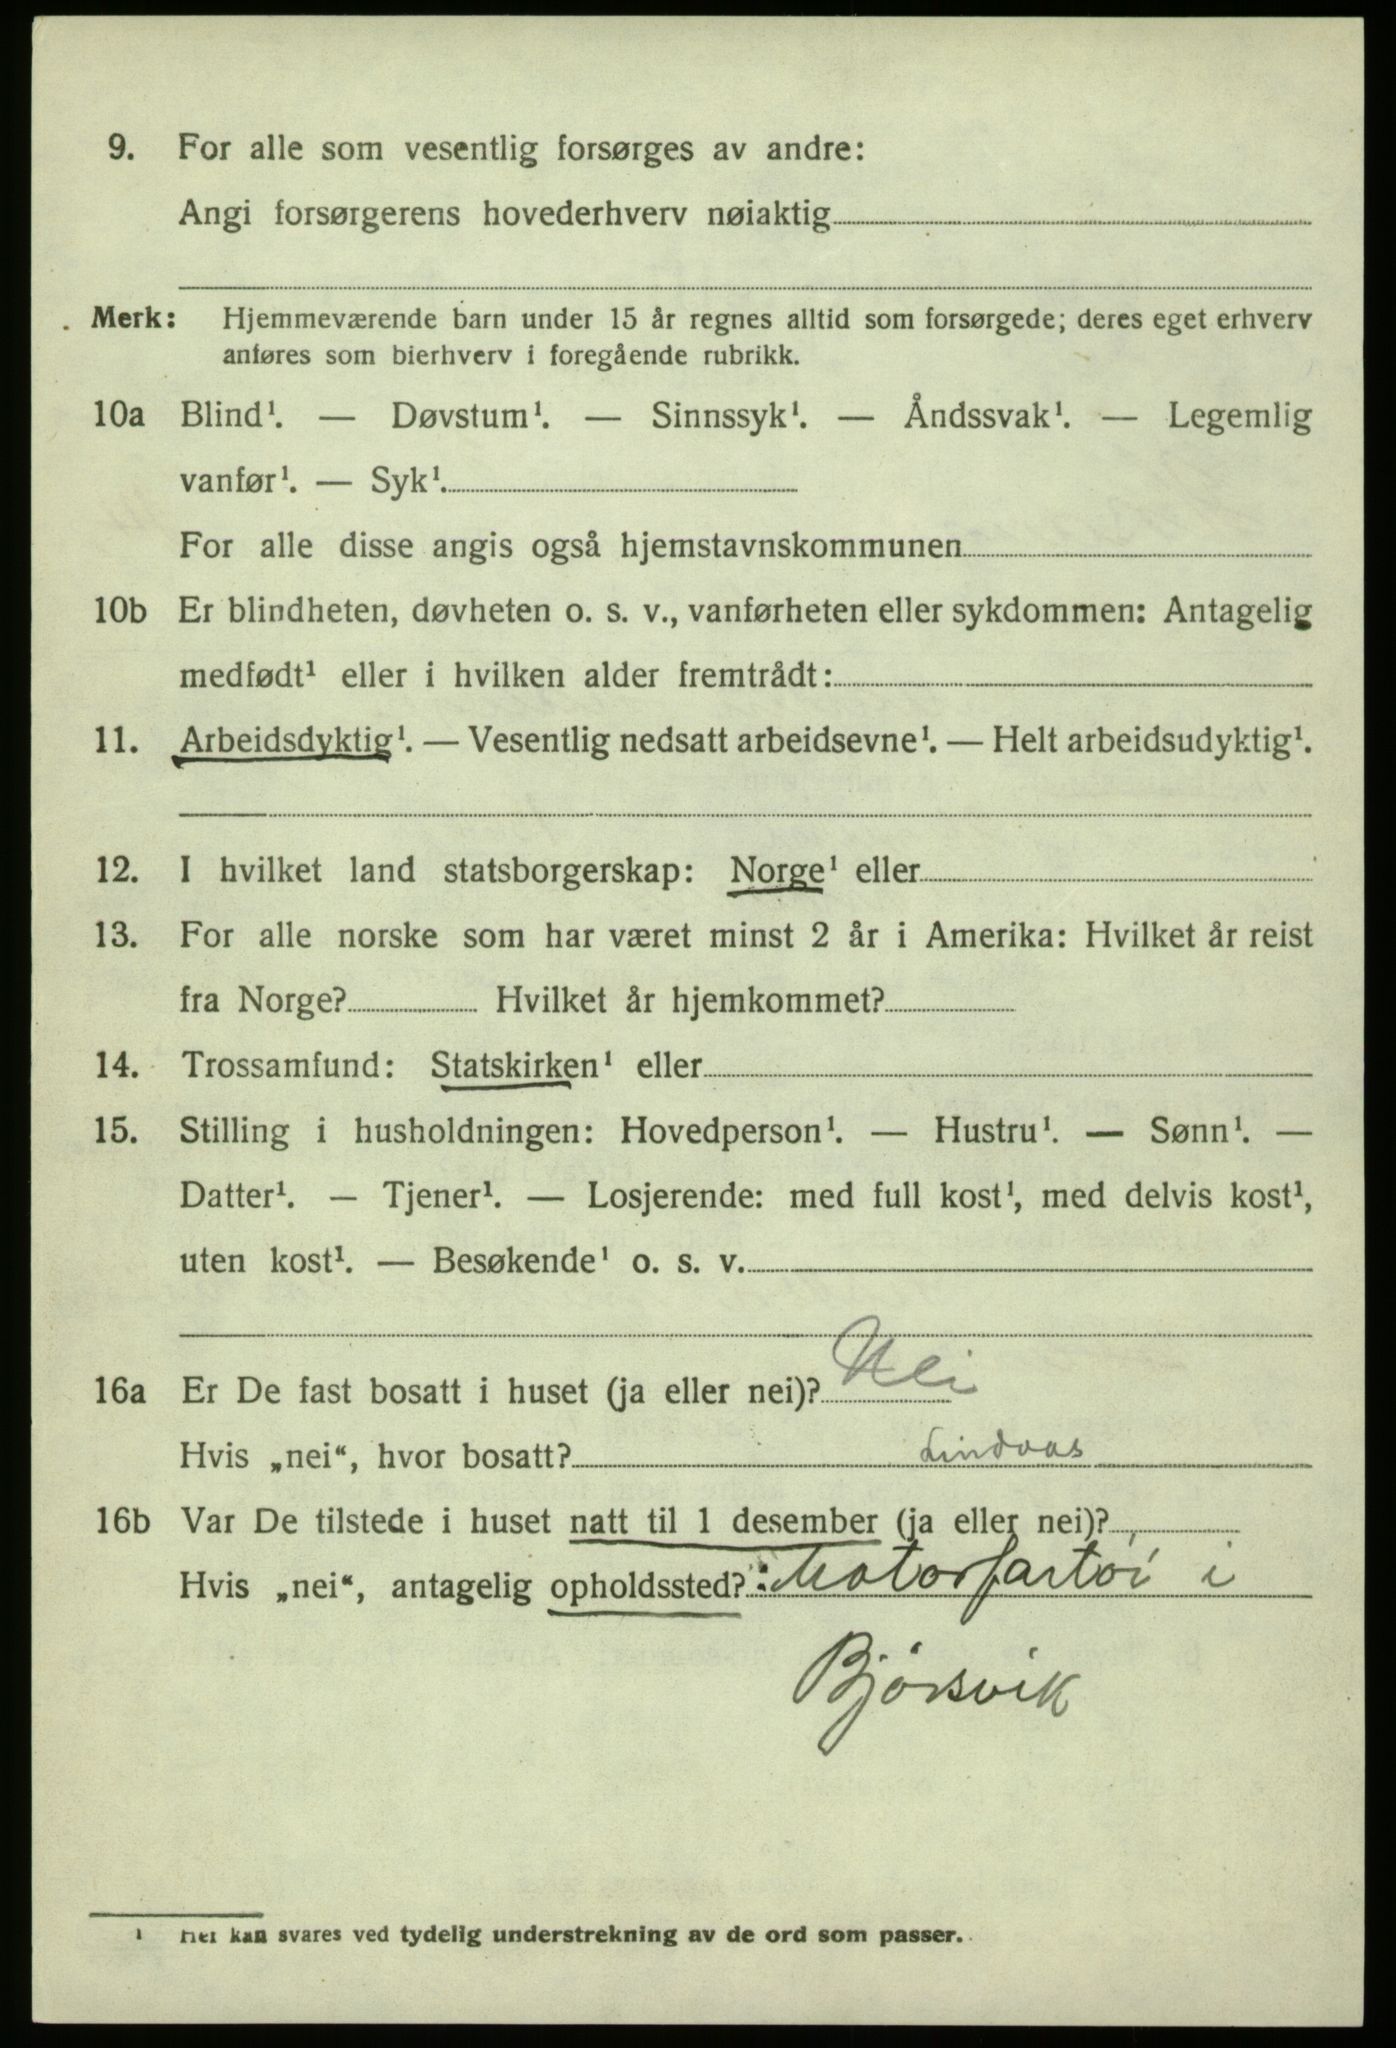 9. For alle som vesentlig forsørges av andre:
Angi forsørgerens hovederhverv nøiaktig
Merk: Hjemmeværende barn under 15 år regnes alltid som forsørgede; deres eget erhverv
anføres som bierhverv i foregående rubrikk.
10a Blind¹. — Døvstum¹. — Sinnssyk¹. — Åndssvak¹. — Legemlig
vanfør¹. — Syk¹.
For alle disse angis også hjemstavnskommunen
10b Er blindheten, døvheten o. s. v., vanførheten eller sykdommen: Antagelig
medfødt¹ eller i hvilken alder fremtrådt:
11. Arbeidsdyktig¹. — Vesentlig nedsatt arbeidsevne¹. — Helt arbeidsudyktig¹.
12. I hvilket land statsborgerskap: Norge¹ eller
13. For alle norske som har været minst 2 år i Amerika: Hvilket år reist
fra Norge? Hvilket år hjemkommet?
14. Trossamfund: Statskirken¹ eller
15. Stilling i husholdningen: Hovedperson¹. — Hustru¹. — Sønn¹. —
Datter¹. — Tjener¹. — Losjerende: med full kost¹, med delvis kost¹,
uten kost¹. — Besøkende¹ o. s. v.
16a Er De fast bosatt i huset (ja eller nei)? Nei
Hvis „nei“, hvor bosatt? Lindaas
16b Var De tilstede i huset natt til 1 desember (ja eller nei)?
Hvis „nei“, antagelig opholdssted?: Motorfartøi i
Bjørsvik
¹ Her kan svares ved tydelig understrekning av de ord som passer.